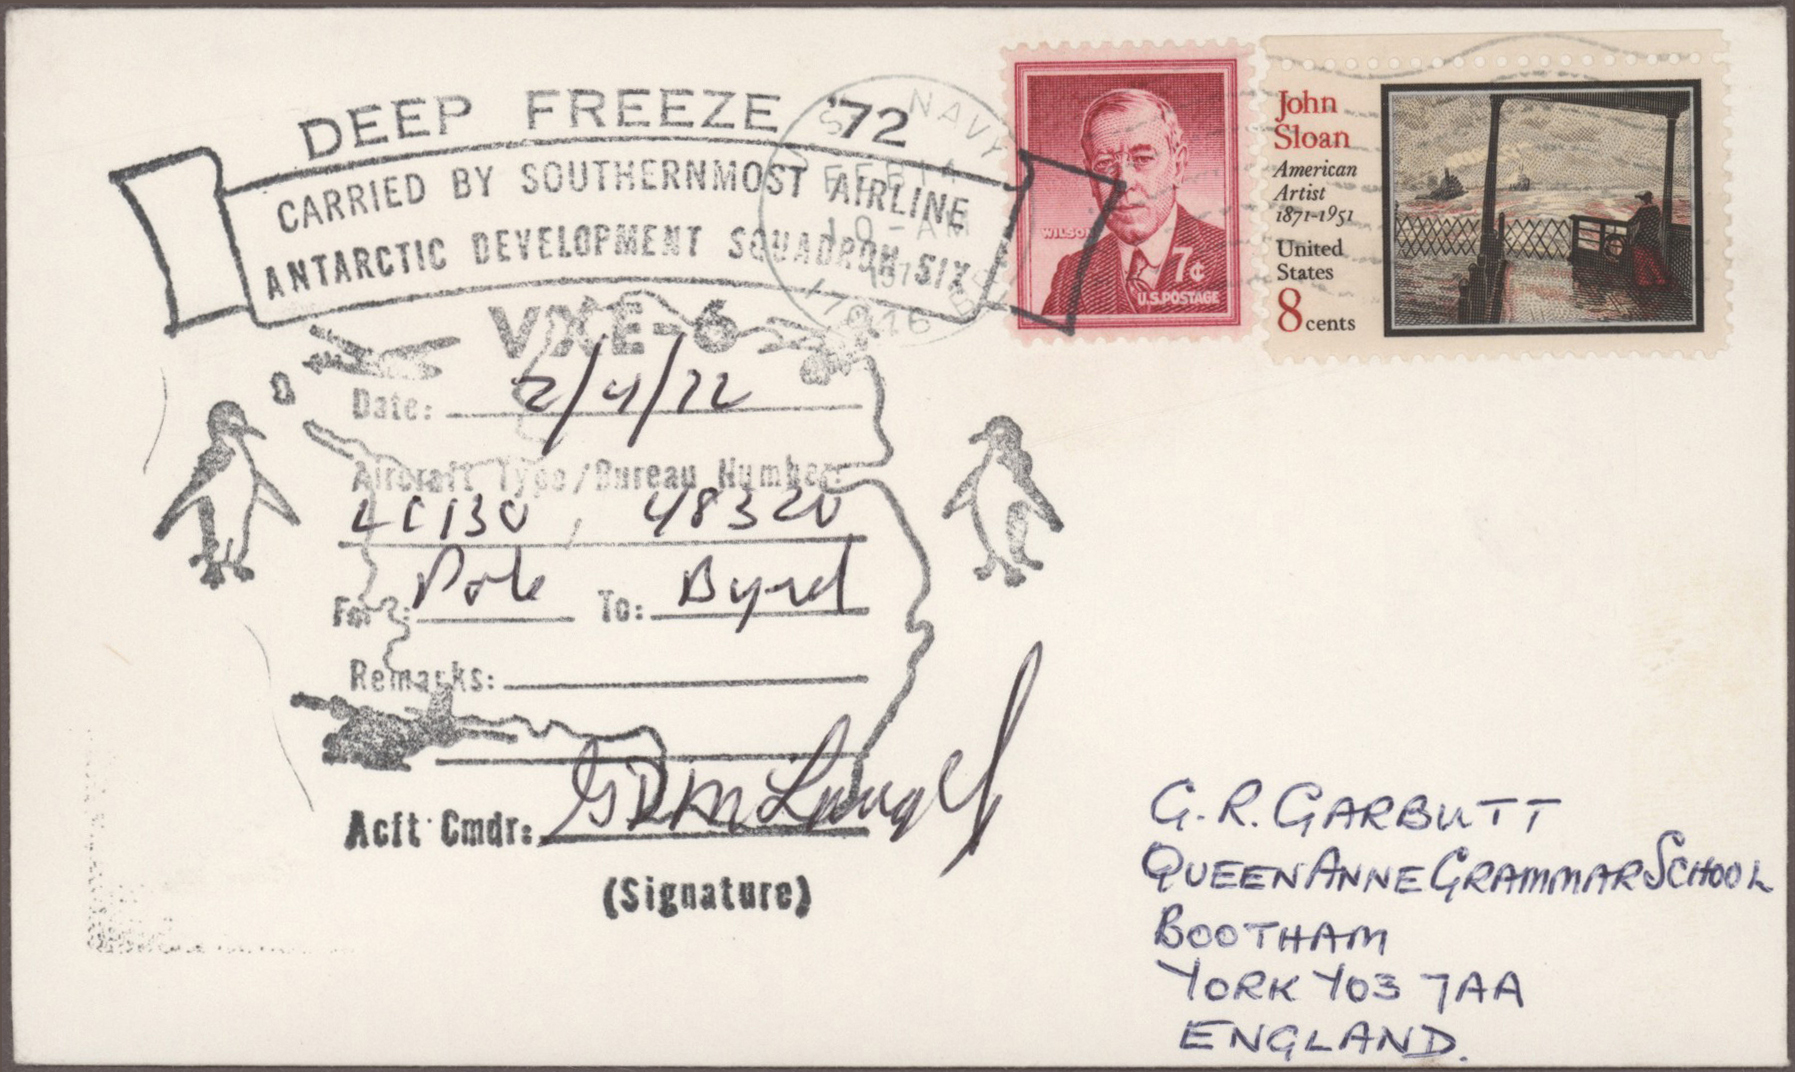 DEEP FREEZE '72
CARRIED BY SOUTHERNMOST AIRLINE
ANTARCTIC DEVELOPMENT SQUADRON SIX
VXE-6
Date: 2/4/72
Aircraft Type/Bureau Number:
LC130, 48320
From: Pole To: Byrd
Remarks:
Acft Cmdr:
(Signature)
U.S. NAVY
FEB 14
10-AM
197
17016
WILSON
7¢
U.S. POSTAGE
John
Sloan
American
Artist
1871-1951
United
States
8 cents
G. R. GARBUTT
QUEEN ANNE GRAMMAR SCHOOL
BOOTHAM
YORK YO3 7AA
ENGLAND.